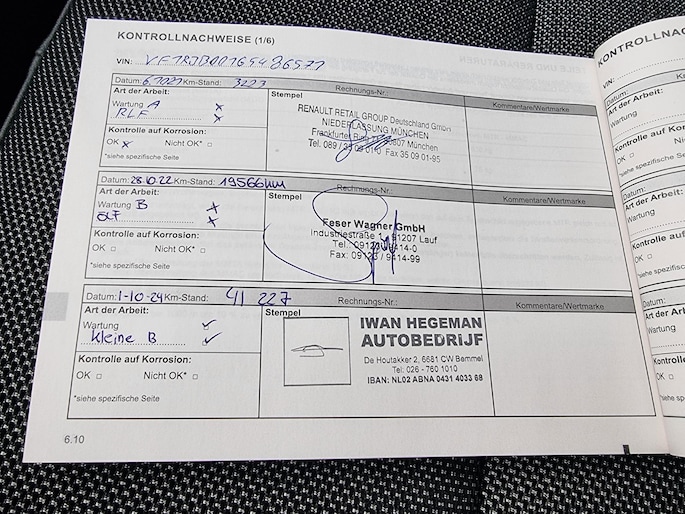 KONTROLLNACHWEISE (1/6)
VIN:
Datum: 6.2021 Km-Stand: 3227 Rechnungs-Nr.:
Art der Arbeit: Stempel Kommentare/Wertmarke
Wartung A x
RLF x
RENAULT RETAIL GROUP Deutschland GmbH
NIEDERLASSUNG MÜNCHEN
Frankfurter Ring 80807 München
Tel. 089 / Fax 35 09 01-95
Kontrolle auf Korrosion:
OK x Nicht OK* □
*siehe spezifische Seite
Datum: 28.10.22 Km-Stand: 19566km Rechnungs-Nr.:
Art der Arbeit: Stempel Kommentare/Wertmarke
Wartung B x
x
Feser Wagner GmbH
Industriestraße 91207 Lauf
Tel. 09123 / 9414-0
Fax: 09123 / 9414-99
Kontrolle auf Korrosion:
OK □ Nicht OK* □
*siehe spezifische Seite
Datum: 1-10-24 Km-Stand: 41 227 Rechnungs-Nr.: Kommentare/Wertmarke
Art der Arbeit: Stempel
Wartung ✓
kleine B ✓
IWAN HEGEMAN
AUTOBEDRIJF
De Houtakker 2, 6681 CW Bemmel
Tel: 026 - 760 1010
IBAN: NL02 ABNA 0431 4033 68
Kontrolle auf Korrosion:
OK □ Nicht OK* □
*siehe spezifische Seite
6.10
KONTROLLNA
VIN:
Datum:
Art der Arbeit:
Wartung
Kontrolle auf
OK □
*siehe spezifische
Datum:
Art der Arbeit
Wartung
Kontrolle auf
OK □
*siehe spezi
Datum:
Art der Ar
Wartung
Kontrolle
OK □